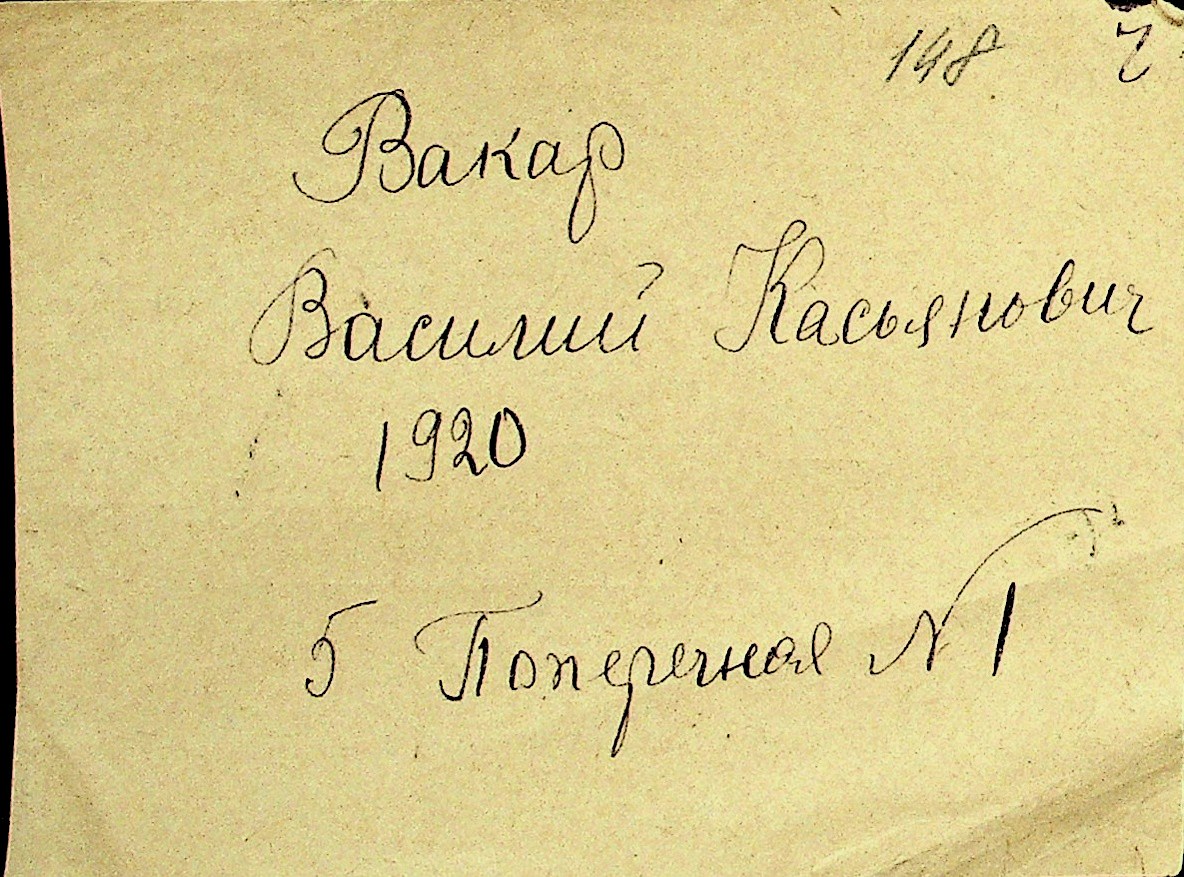 148
Вакар
Василий Касьянович
1920
5 Поперечная N 1